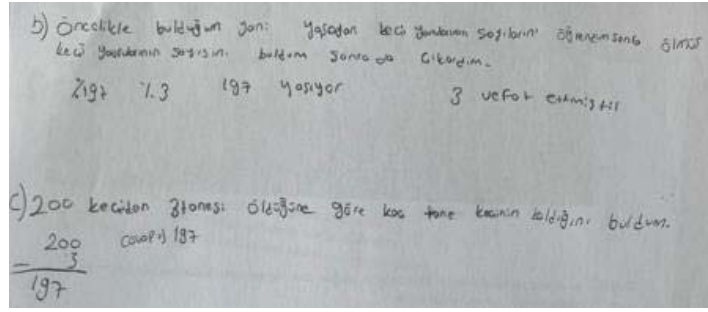 b) Öncelikle bulduğum şan: yaşadan keci yavrularının sayıların öğrenem sonra ölmüş
keci yavrularının sayısın. buldum sonra da çıkardım.
%197 %.3 197 yaşıyor 3 vefat etmiştir
C) 200 keciden 3 tanesi öldüğüne göre kaç tane kecinin kaldığını buldum.
200 cevap:) 197
- 3
197